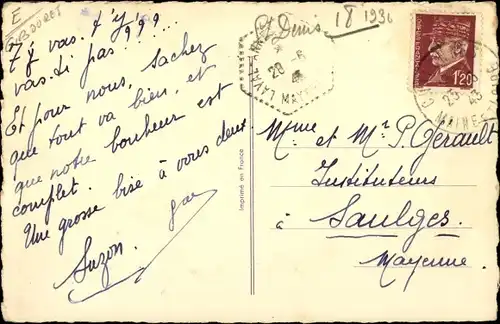 E
TIBOURET
St Denis
18 1936
7 y vas. t'y ! ? ? ?
vas. ti pas!....
Et pour nous, sachez
que tout va bien, et
que notre bonheur est
complet.
Une grosse bise à vous deux
Suzon.
Imprimé en France
1F20
MAYENNE
Mme et Mr P. Gérault
Instituteurs
à Saulges.
Mayenne.